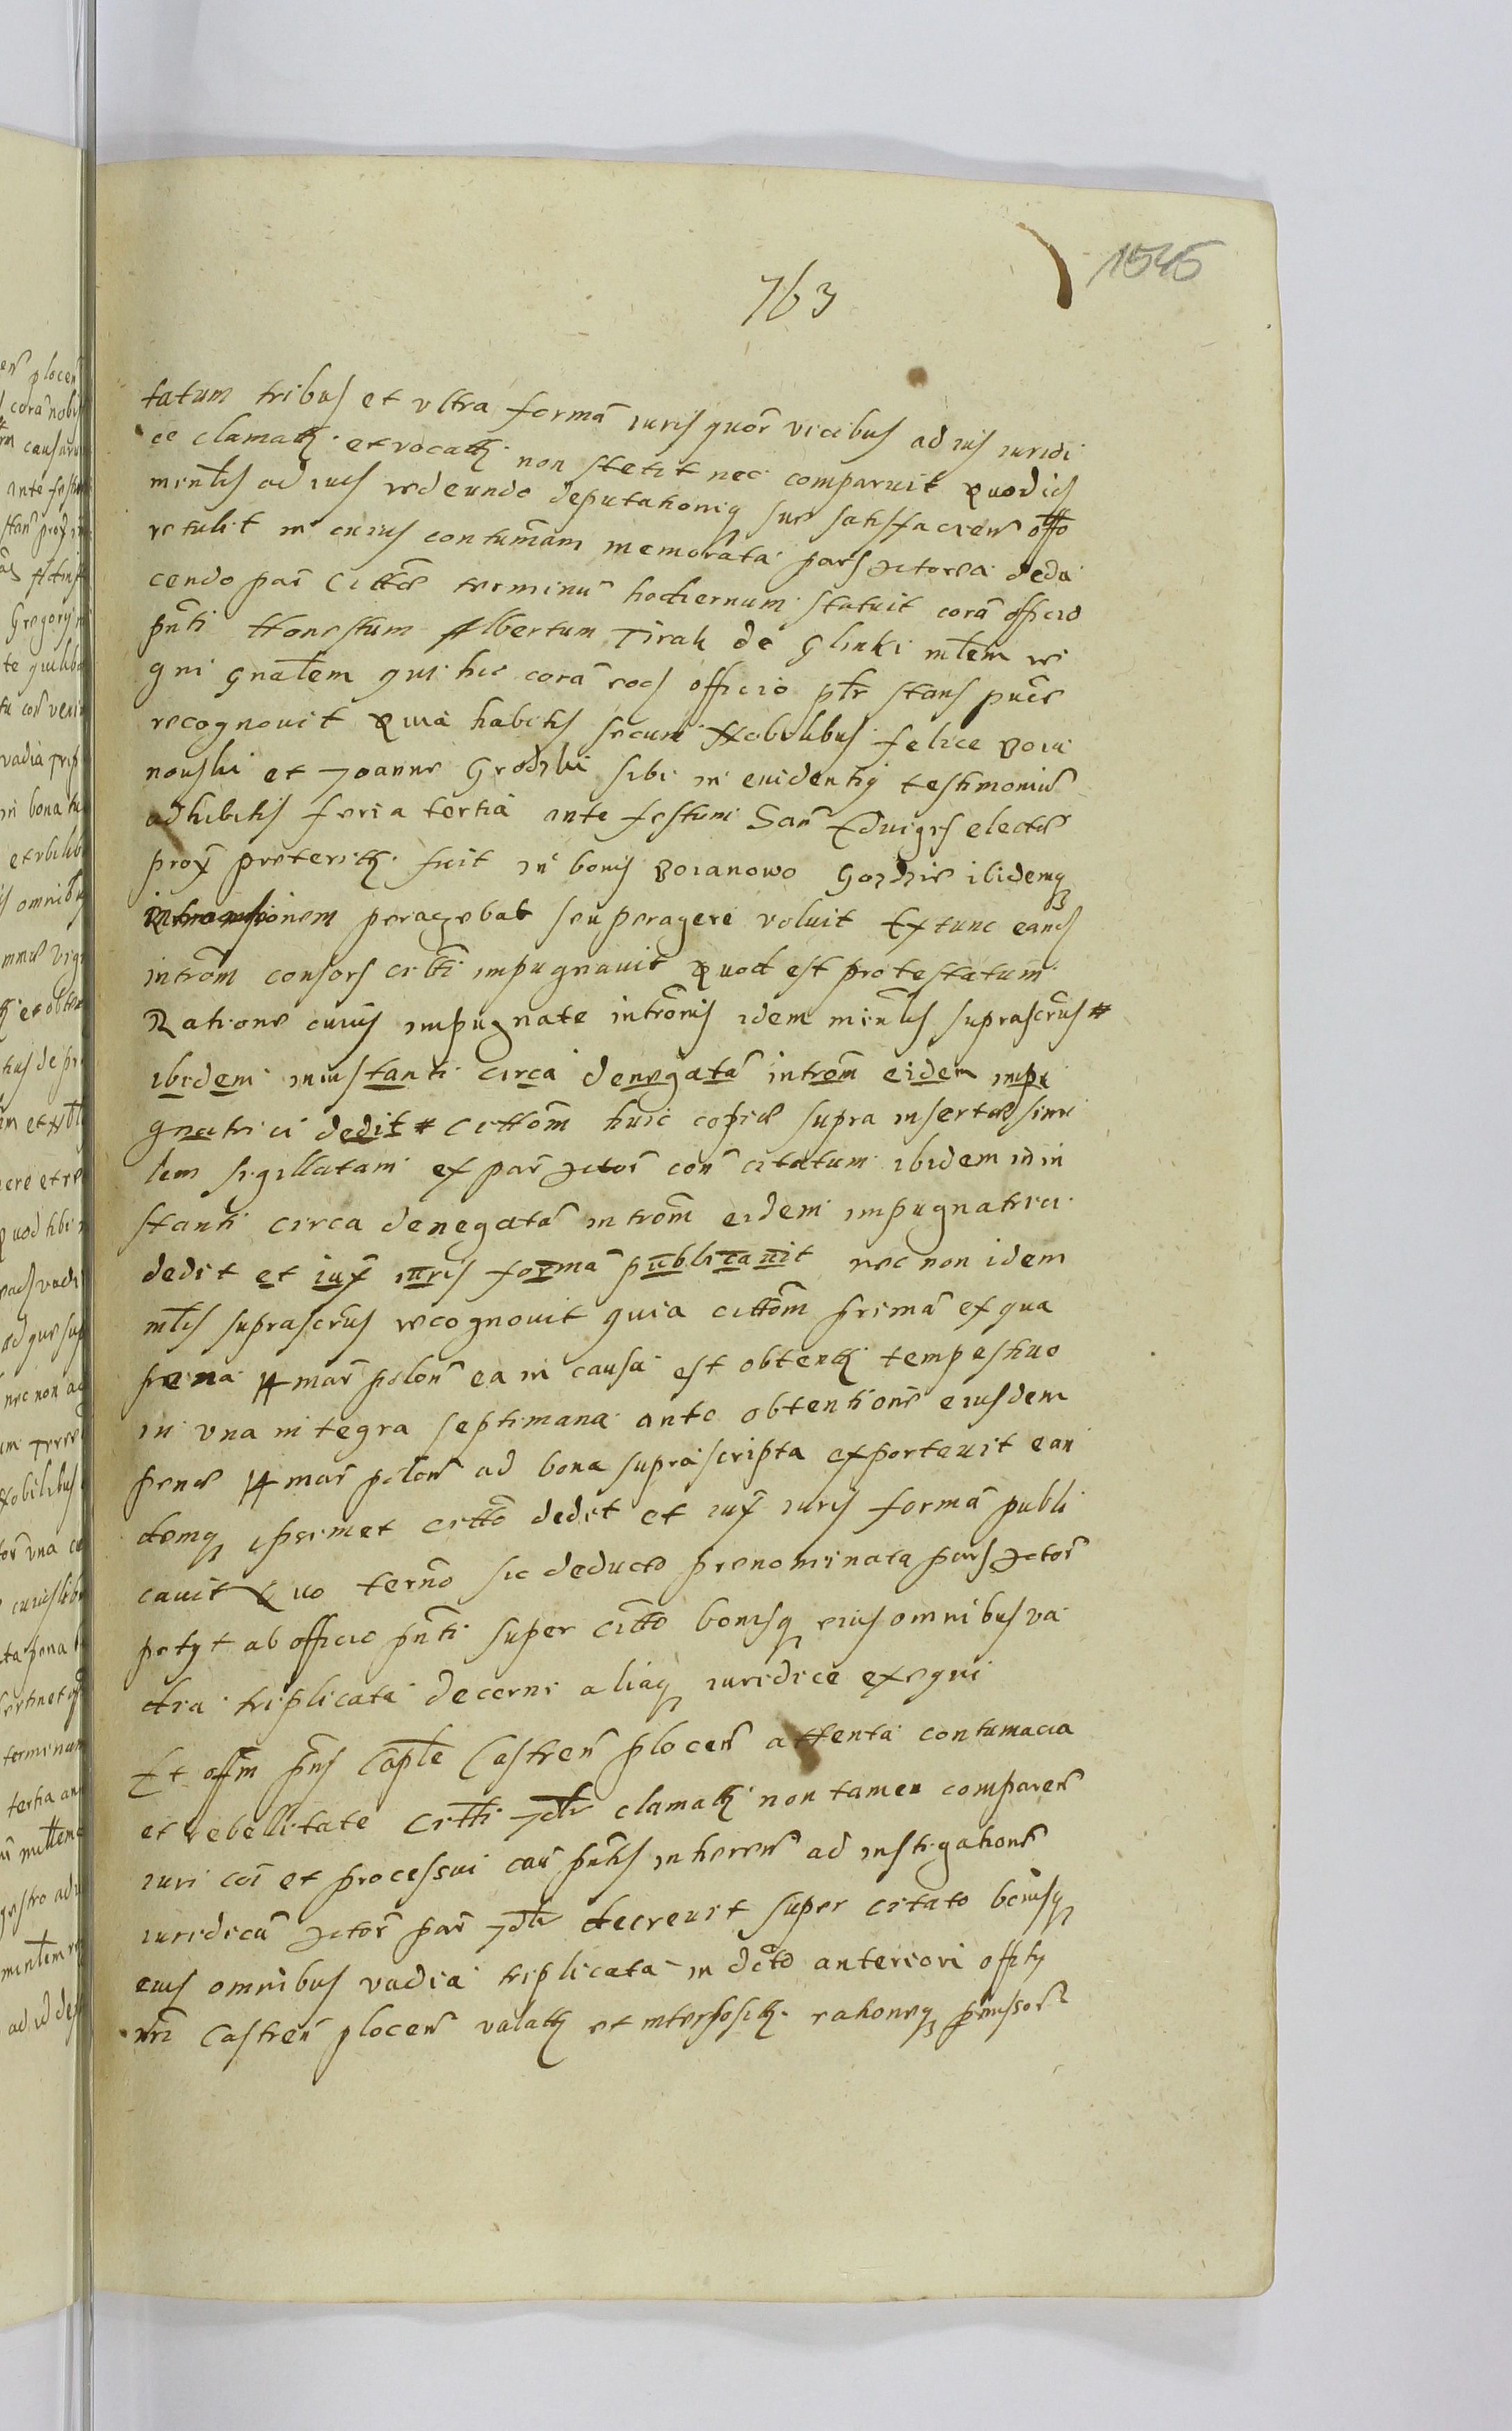 763
1545
tatum tribus et vltra formã iuris quõr vicibus ad ius iuridi
ce clamatt. et vocatt. non stetit nec comparuit Quod ids
minlis ad ius redeundo deputationiq sue satisfacien offo
retulit in cuius contumãm memorata pars Actorea dedu
cendo par Cittãe terminũ hodiernum statuit corã officio
pñti Honestum Albertum Tirak de Glinki mlem re
gni gñalem qui hic corã eod officio pħr stans publice
recognouit Quia habitis secum Nobilibus felice Boia
nouski et Joanne Grodzki sibi in euidentiq testimoniũ
adhibitis feria tertia ante festum San Eduigis electe
prox preteritt. fuit in bonis Boianowo Gozdzie ibidemq
intromissionem peragebat seu peragere voluit Extunc eand
intrõm consors citti impugnauit Quod est protestatum
Ratione cuius impugnate intrõnis idem minlis suprascrus #
ibidem in instanti circa denegatã intrõm eidem impu
gnatrici dedit # Cittõm huic copie supra inserte simi
lem sigillatam ex par Actor con citatum ibidem in in
stanti circa denegatã intrõm eidem impugnatrici
dedit et iux iuris formã publicauit nec non idem
mlis suprascrus recognouit quia cittõm primã ex qua
pena 14 mar polon ea in causa est obtentt tempestiuo
in vna integra septimana ante obtentione eiusdem
pene 14 mar polon ad bona suprascripta exportauit ean
demq ipsimet citto dedit et iux iuris formã publi
cauit Quo terno sic deducto prenominata pars Actor
petyt ab officio pñti super citto bonisq eius omnibus va
dia triplicata decerni aliaq iuridice exequi
Et offm pns Caple Castren plocen attenta contumacia
et rebellitate citti clamatt non tamen comparen
iuri coi et processui cau pñtis inheren ad instigationẽ
iuridicã Actor par decreuit super citato bonisq
eius omnibus vadia triplicata in dicto anteriori offity
nri Castren plocen valatt et interpositt. rationeq pmissor